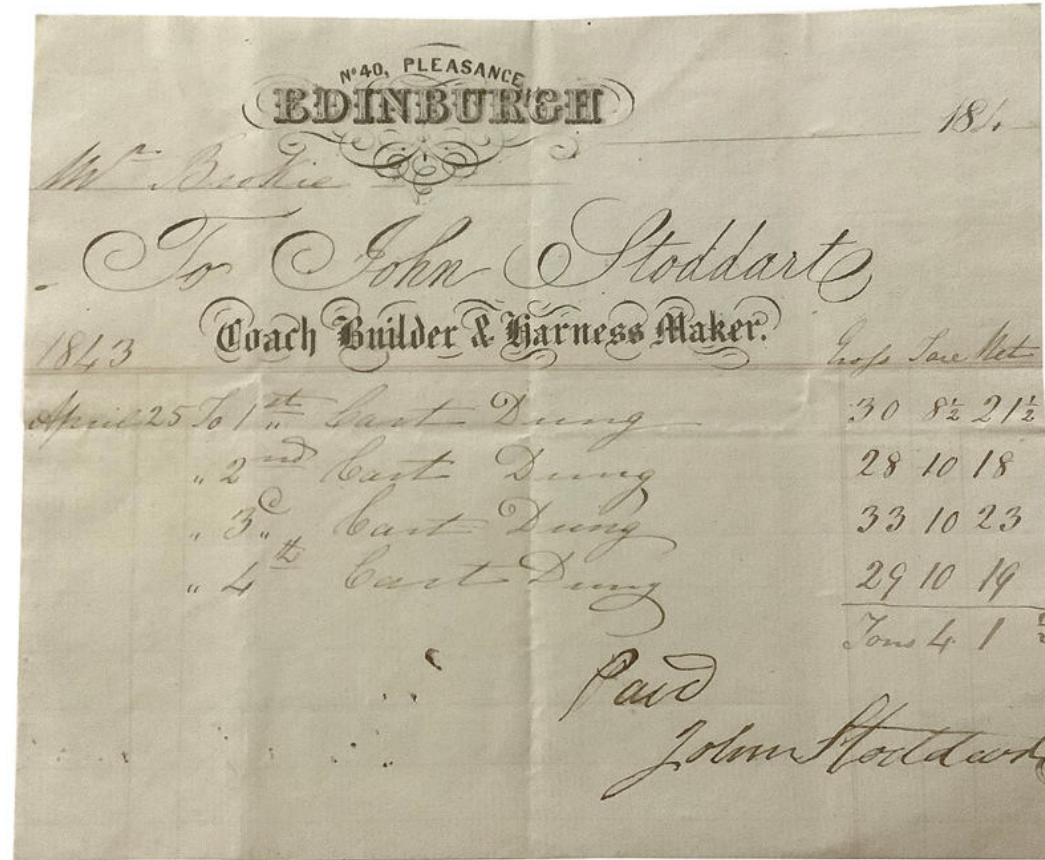 No. 40, PLEASANCE,
EDINBURGH
184
Mr Brokie
To John Stoddart
Coach Builder & Harness Maker.
1843 Gross Tare Net
April 25 To 1st Cart Dung 30 8½ 21½
" 2nd Cart Dung 28 10 18
" 3d Cart Dung 33 10 23
" 4th Cart Dung 29 10 19
Tons 4 1 ½
Paid
John Stoddart